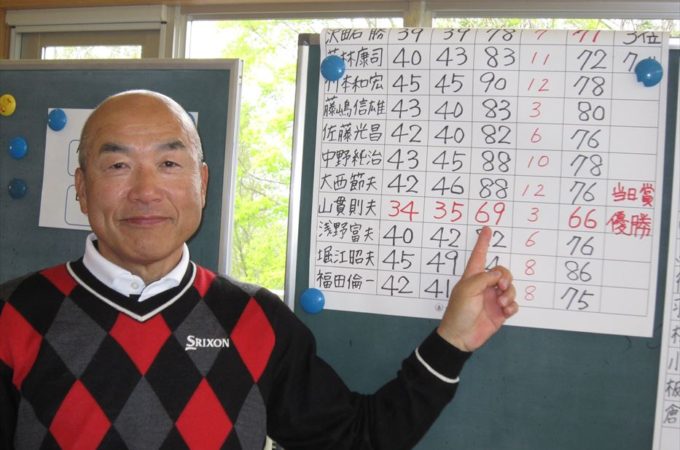 沢田石 勝 39 39 78 7 71 3位
若林康司 40 43 83 11 72
竹本和宏 45 45 90 12 78
藤嶋信雄 43 40 83 3 80
佐藤光昌 42 40 82 6 76
中野純治 43 45 88 10 78
大西節夫 42 46 88 12 76 当日賞
山貫則夫 34 35 69 3 66 優勝
浅野富夫 40 42 82 6 76
堀江昭夫 45 49 8 86
福田倫一 42 41 8 75
SRIXON